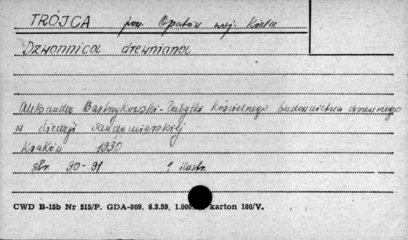 TRÓJCA pow. Opatów woj. Kielce
Dzwonnica drewniana
Aleksander Bastrzykowski - Zabytki Kościelnego budownictwa drzewnego
w diecezji Sandomierskiej
Kraków 1930
str. 90-91 1 ilustr.
CWD B-15b Nr 515/P. GDA-809. 6.3.59. 1.000 karton 180/V.